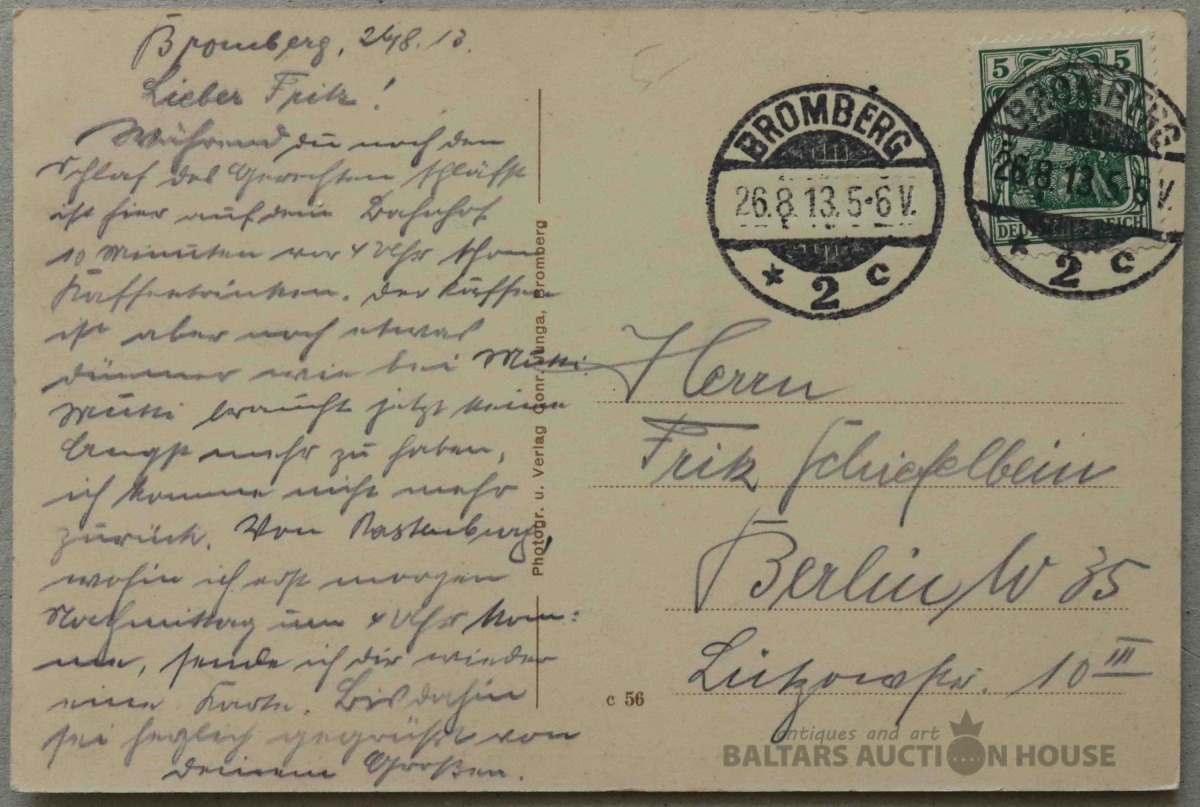 Bromberg, 26/8. 13.
Lieber Fritz!
Während du noch den
Schlaf des Gerechten schläfst
ist hier auf dem Bahnhof
10 Minuten vor 4 Uhr schon
Kaffeetrinken. Der Kaffee
ist aber noch etwas
dünner wie bei Mutti.
Mutti braucht jetzt keine
Angst mehr zu haben,
ich komme nicht mehr
zurück. Von Rastenburg,
wohin ich erst morgen
Nachmittag um 4 Uhr kom=
me, sende ich dir wieder
eine Karte. Bis dahin
sei herzlich gegrüßt von
deinem Großen.
Photogr. u. Verlag Conr. Junga, Bromberg
c 56
BROMBERG
26.8.13.5-6V.
* 2 c
5 5
DEUTSCHES REICH
BROMBERG
26.8.13.5-6V.
* 2 c
Herrn
Fritz Schiefelbein
Berlin W 35
Lützowstr. 10 III
antiques and art
BALTARS AUCTION HOUSE